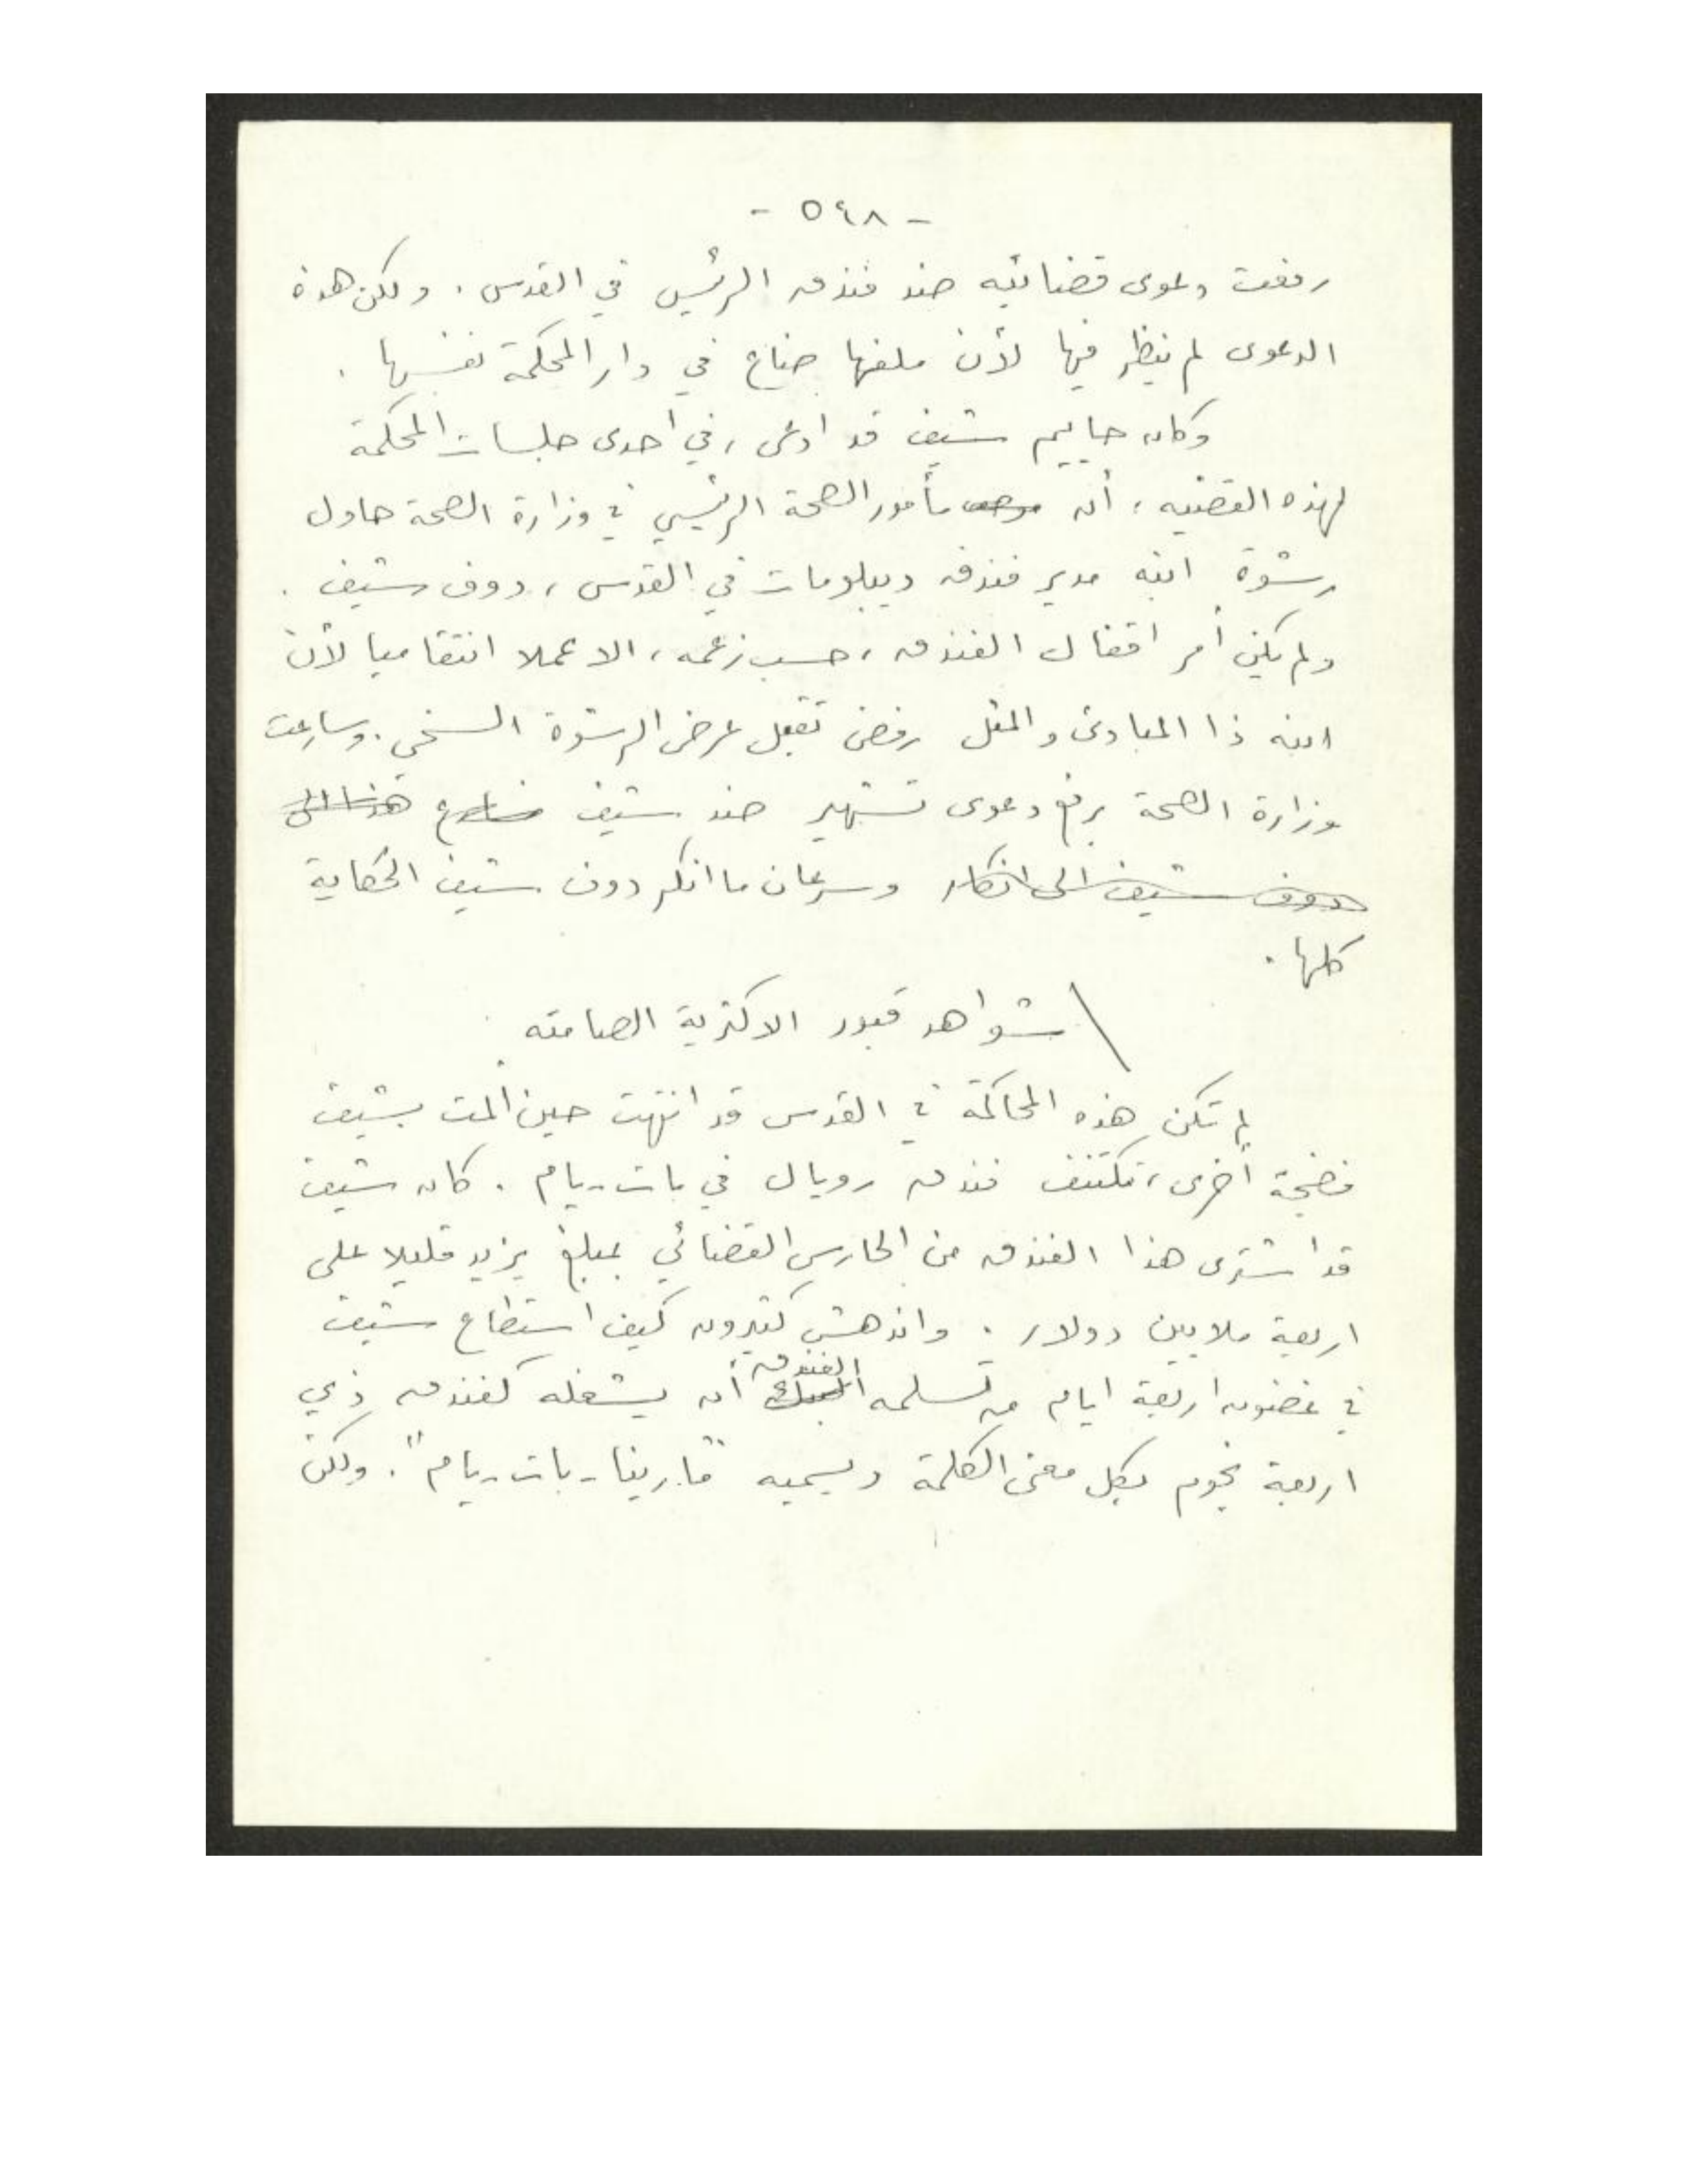 - ٥٤٨ -
رفعت دعوى قضائيه ضد فندق الرئيس في القدس. ولكن هذه
الدعوى لم ينظر فيها لأن ملفها ضاع في دار المحكمة نفسها.
وكان حاييم شيف قد ادعى، في احدى جلسات المحكمة
لهذه القضيه، أن مأمور الصحة الرئيسي في وزارة الصحة حاول
رشوة ابنه مدير فندق ديبلومات في القدس، دوف شيف.
ولم يكن أمر اقفال الفندق، حسب زعمه، الا عملا انتقاميا لأن
ابنه ذا المبادئ والمثل رفض تقبل عرض الرشوة السخي. وسارعت
وزارة الصحة برفع دعوى تشهير ضد شيف
دوف شيف الى انكار وسرعان ما انكر دوف شيف الحكاية
كلها.
شواهد قبور الاكثرية الصامته
لم تكن هذه المحاكمة في القدس قد انتهت حين ألمت بشيف
فضيحة أخرى، تكتنف فندق رويال في بات-يام. كان شيف
قد اشترى هذا الفندق من الحارس القضائي بمبلغ يزيد قليلا على
اربعة ملايين دولار. واندهش كثيرون كيف استطاع شيف
في غضون اربعة ايام من تسلمه الفندق أن يشغله كفندق ذي
اربعة نجوم بكل معنى الكلمة ويسميه "مارينا-بات-يام". ولكن